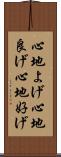 心地よげ心地
良げ心地好げ